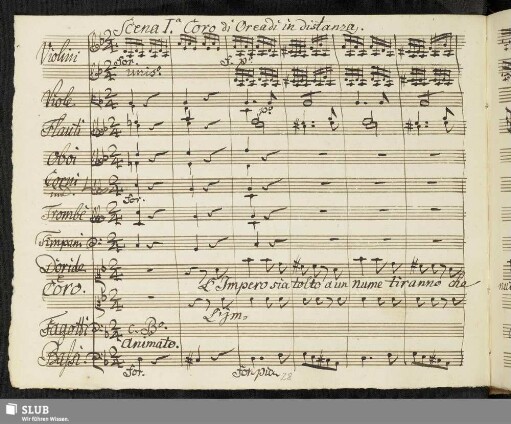 Scena I.ª Coro di Oreadi in distanza.
Violini
For.
unis.
F. p.º
Viole
p.º
Flauti
Oboi
Corni
For.
Trombe
Timpani
Doride
e
Coro.
L'Impero sia tolto a un nume tiranno che
L'Im.
Fagotti
C. B.º
Animato.
Bassi
For.
For. pia.
28
SLUB
Wir führen Wissen.